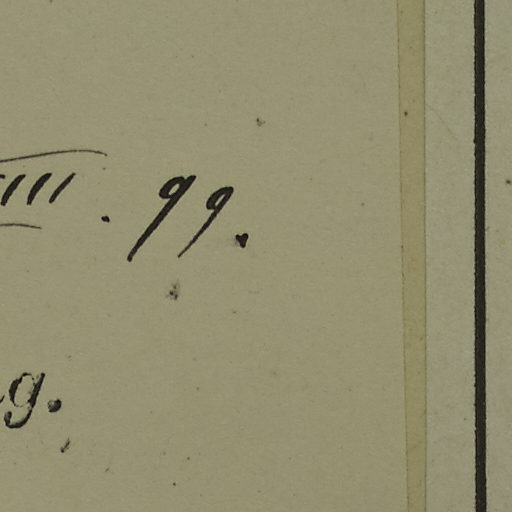 III. 99.
g.